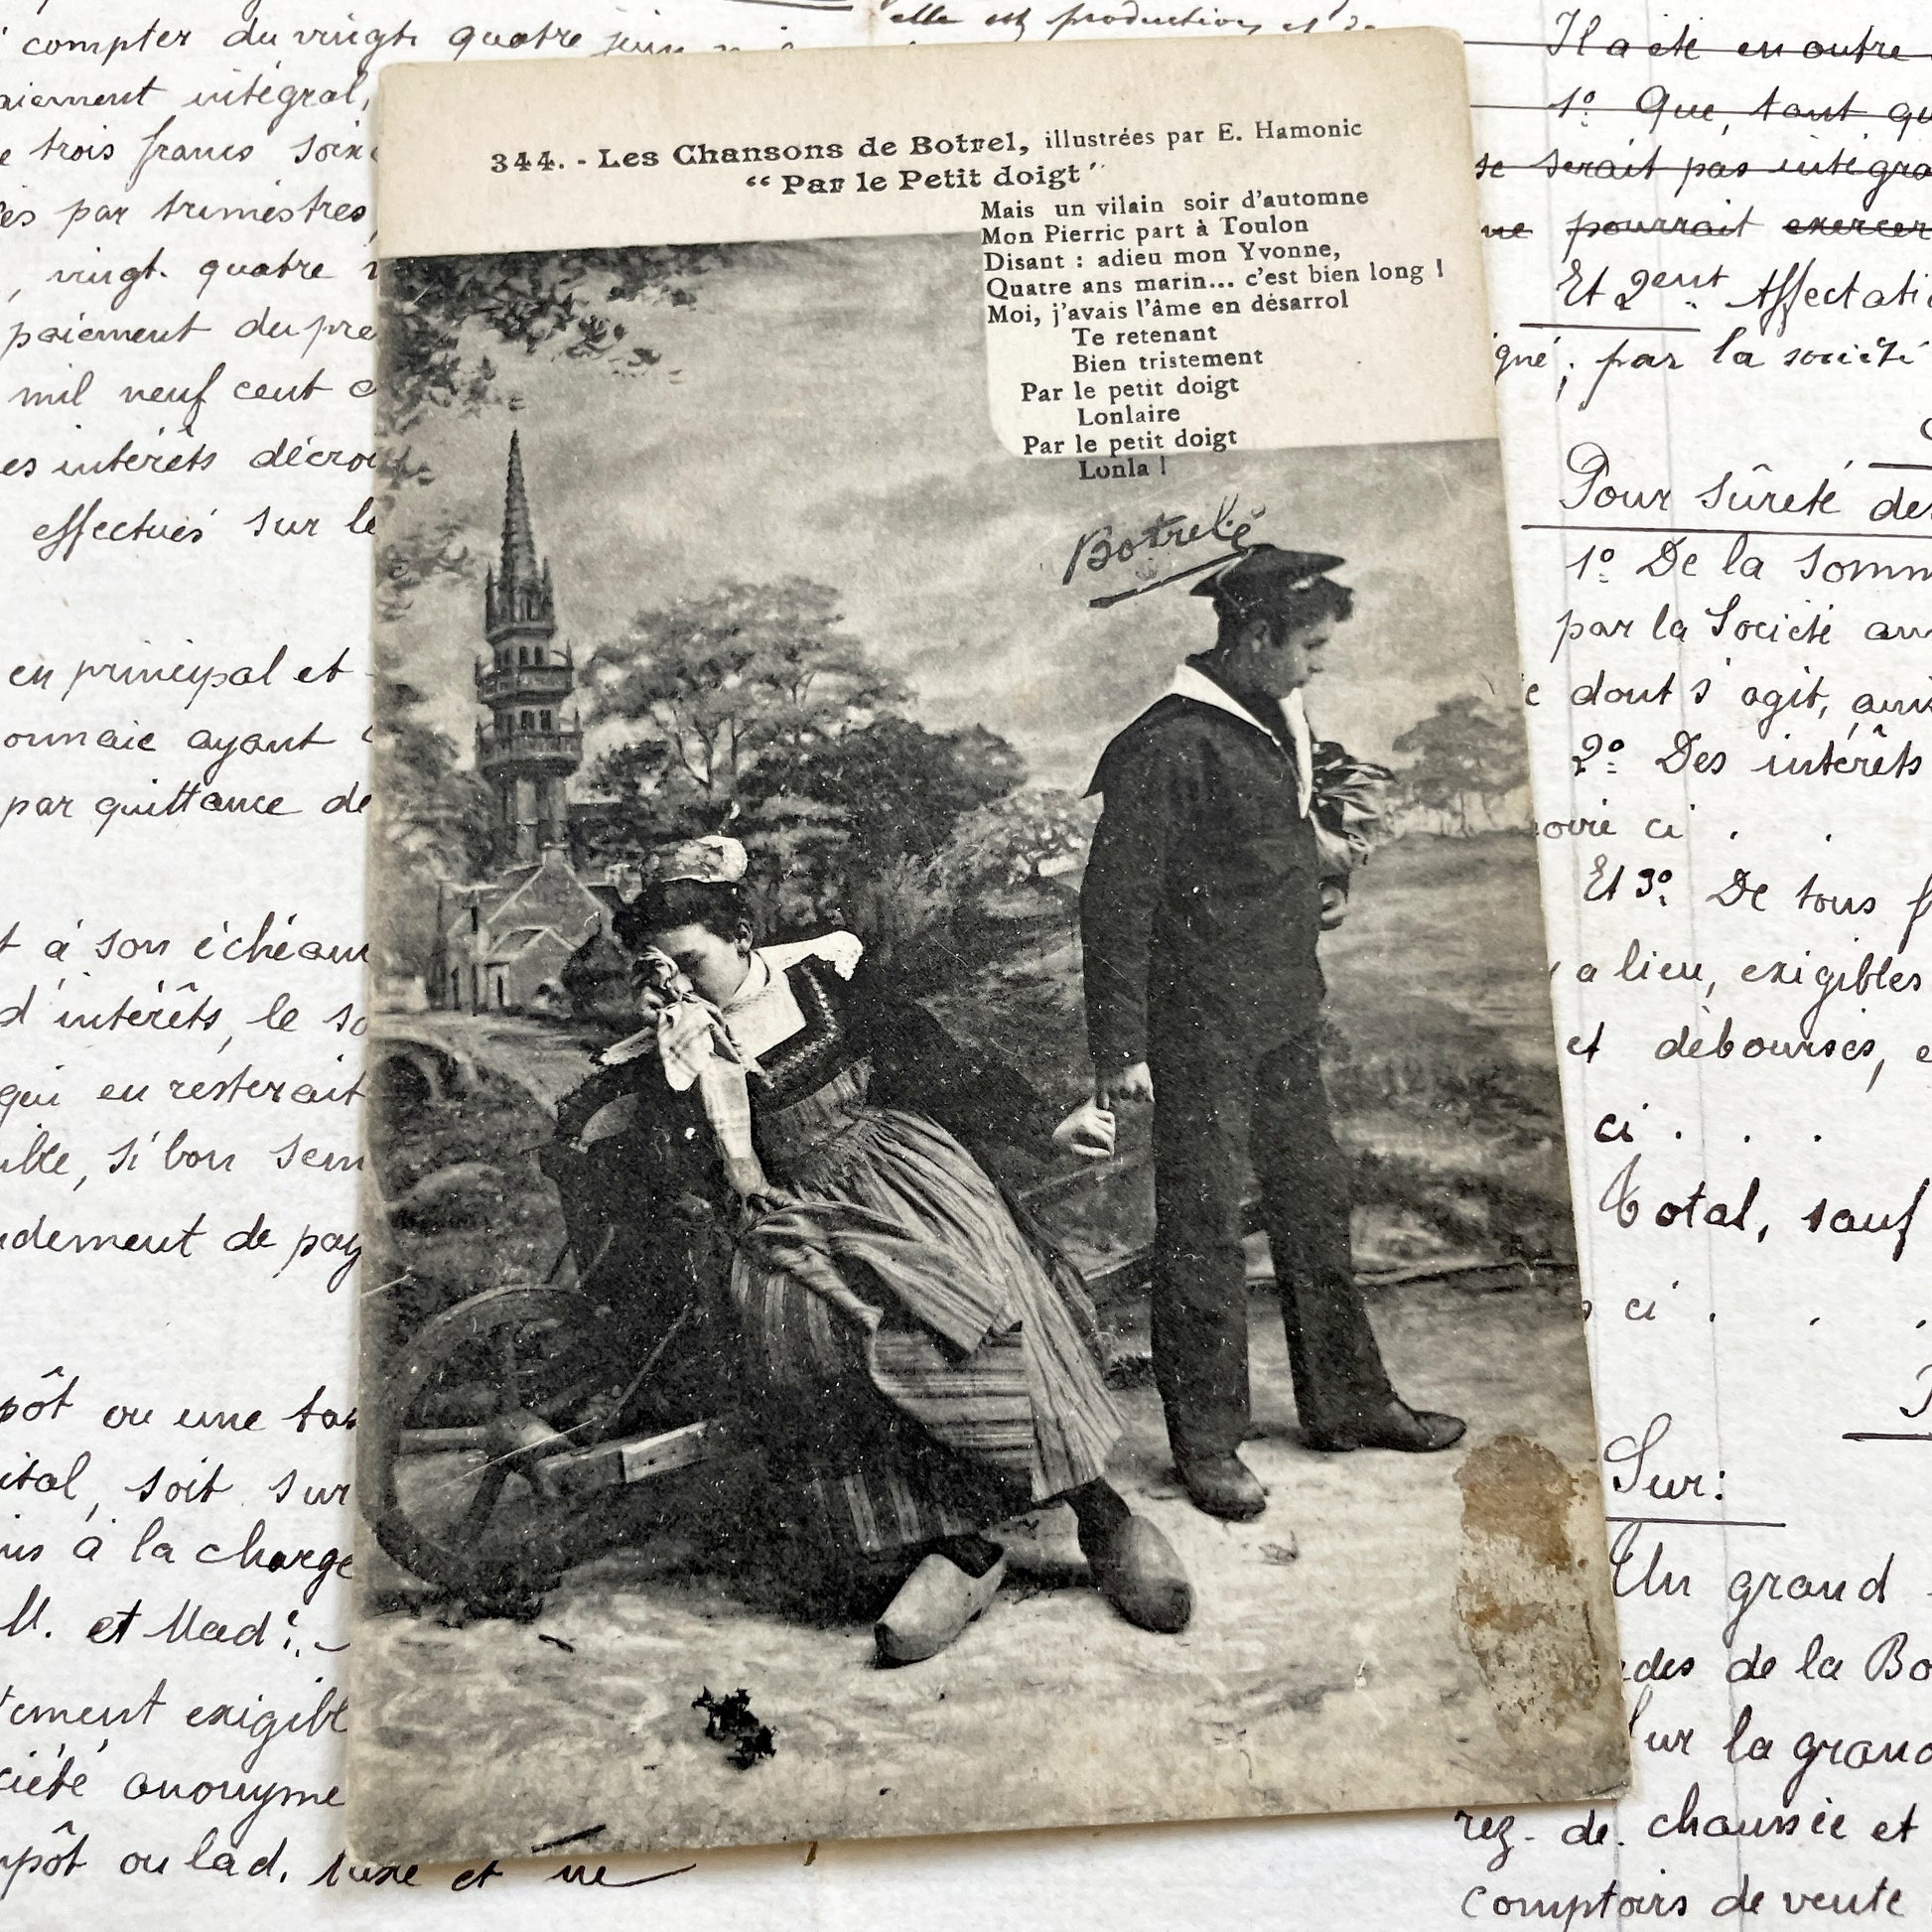 344. - Les Chansons de Botrel, illustrées par E. Hamonic
“ Par le Petit doigt ”
Mais un vilain soir d'automne
Mon Pierric part à Toulon
Disant : adieu mon Yvonne,
Quatre ans marin... c'est bien long !
Moi, j'avais l'âme en désarroI
Te retenant
Bien tristement
Par le petit doigt
Lonlaire
Par le petit doigt
Lonla !
compter du vingt quatre juin
aiement intégral,
trois francs soix
es par trimestres,
, vingt. quatre
paiement du pre
mil neuf cent
es intérêts décrou
effectués sur le
en principal et
onnaie ayant
par quittance de
à son échéan
d'intérêts, le so
qui en resterait
ible, si bon sem
ndement de pay
pôt ou une tax
ital, soit sur
is à la charge
M. et Mad.
tement exigibl
ciété anonyme
mpôt ou lad. taxe et ne
elle est productive, et de
Il a été en outre
1º. Que, tant qu
se serait pas intégra
ne pourrait exercer
Et 2ent. Affectati
igné ; par la société
Pour sûreté de
1º. De la somm
par la Société an
e dont s'agit, ains
2º. Des intérêts
oire ci . .
Et 3º. De tous f
a lieu, exigibles
et débourses, e
ci . . .
Total, sauf
ci . . .
Sur :
Un grand
des de la Bo
Sur la grand
rez. de. chaussée et
comptoirs de vente